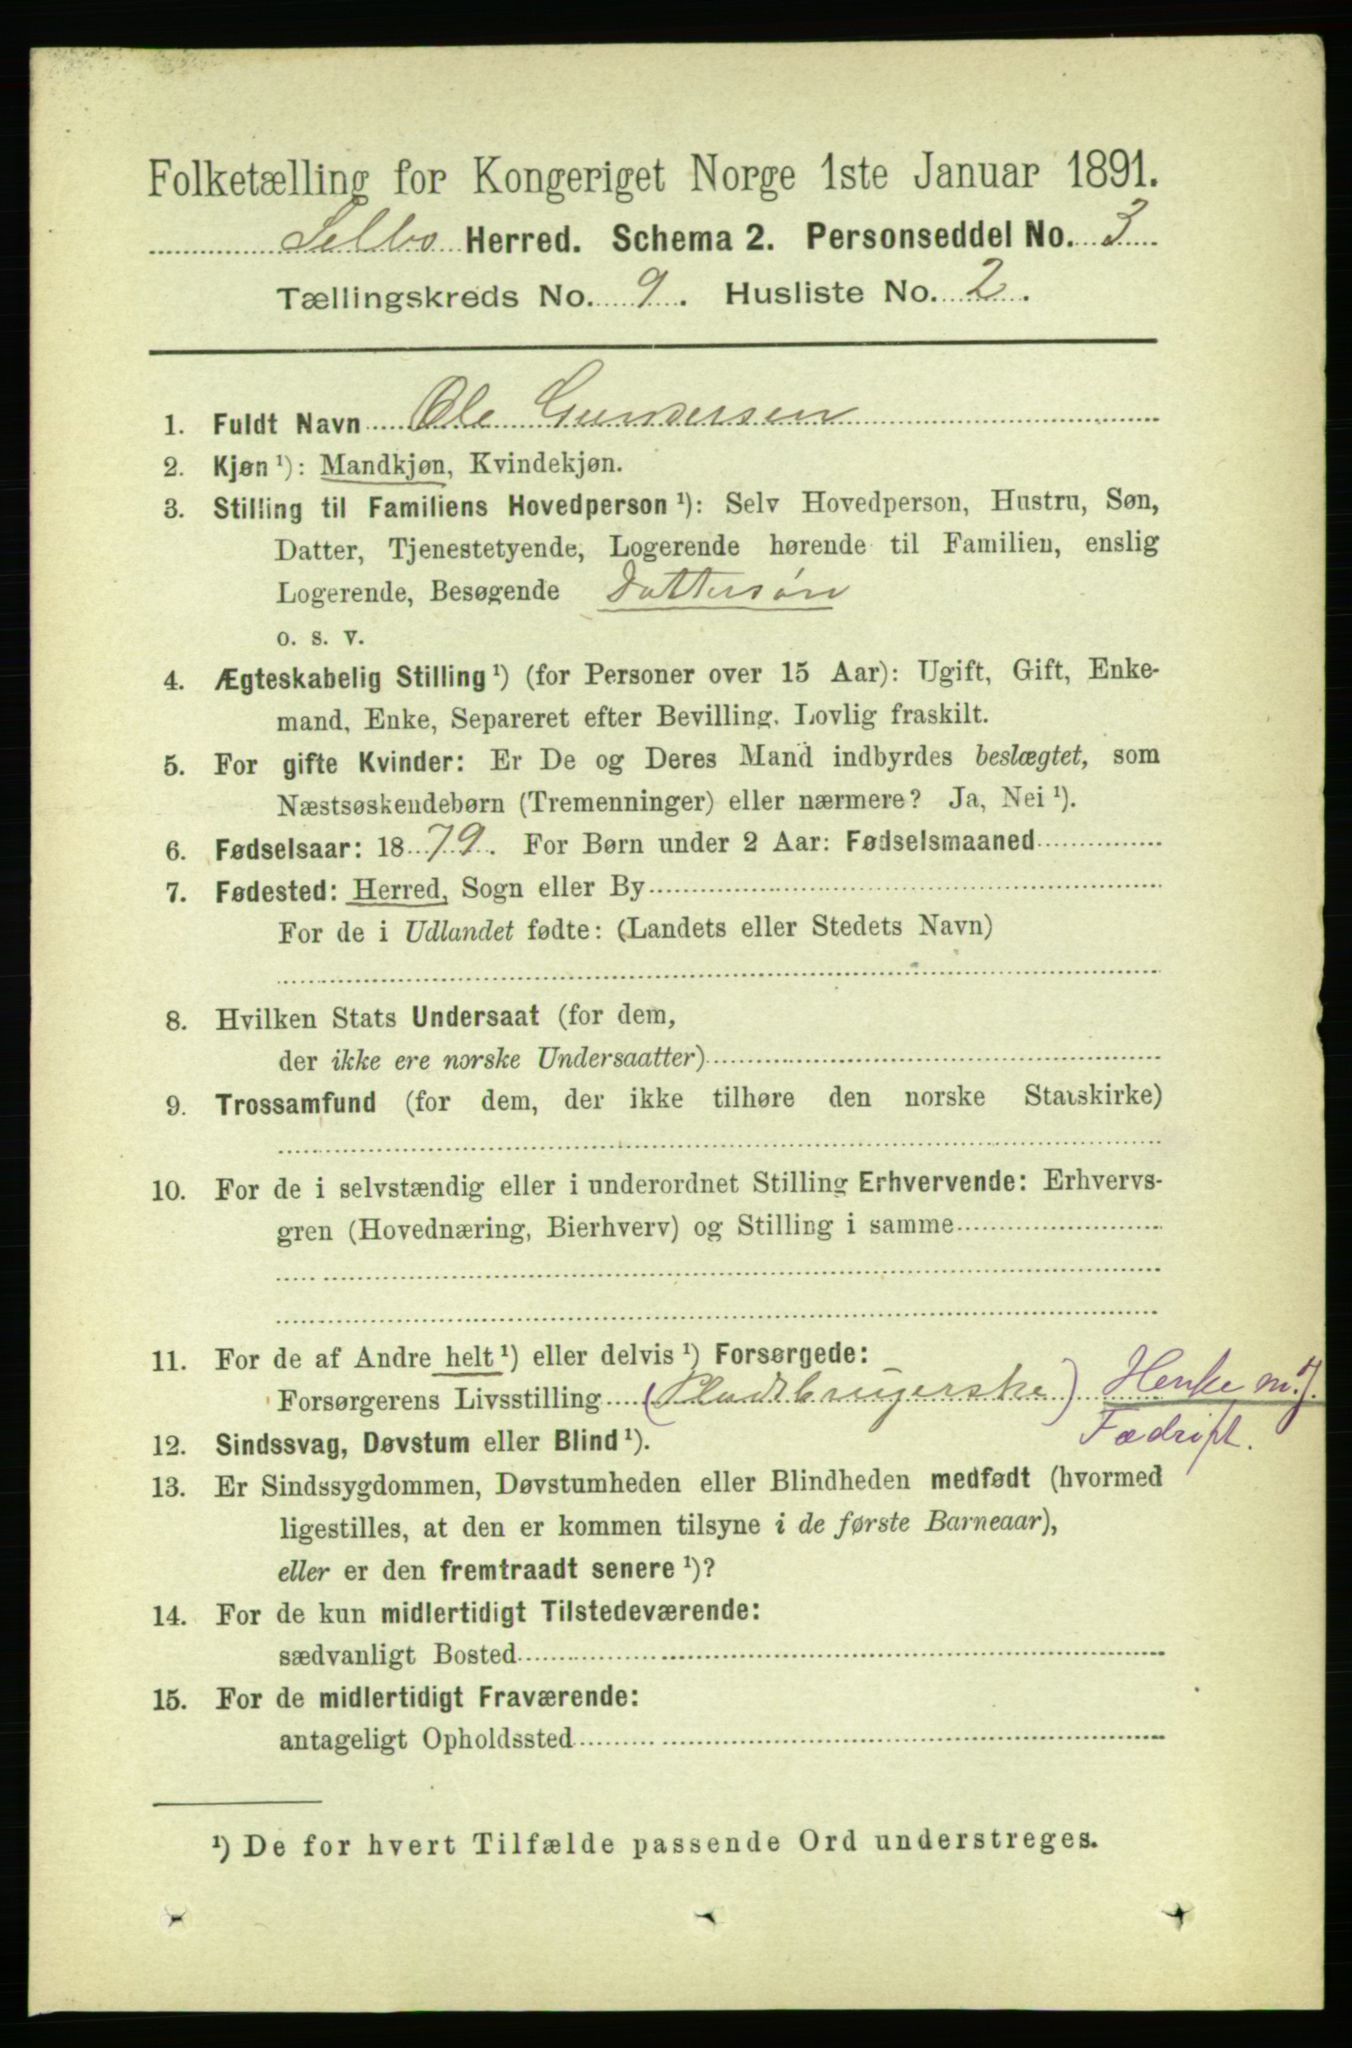 Folketælling for Kongeriget Norge 1ste Januar 1891.
Selbo Herred. Schema 2. Personseddel No. 3
Tællingskreds No. 9. Husliste No. 2.
1. Fuldt Navn Ole Gundersen
2. Kjøn ¹): Mandkjøn, Kvindekjøn.
3. Stilling til Familiens Hovedperson ¹): Selv Hovedperson, Hustru, Søn,
Datter, Tjenestetyende, Logerende hørende til Familien, enslig
Logerende, Besøgende Dattersøn
o. s. v.
4. Ægteskabelig Stilling ¹) (for Personer over 15 Aar): Ugift, Gift, Enke-
mand, Enke, Separeret efter Bevilling. Lovlig fraskilt.
5. For gifte Kvinder: Er De og Deres Mand indbyrdes beslægtet, som
Næstsøskendebørn (Tremenninger) eller nærmere? Ja, Nei ¹).
6. Fødselsaar: 1879. For Børn under 2 Aar: Fødselsmaaned
7. Fødested: Herred, Sogn eller By
For de i Udlandet fødte: (Landets eller Stedets Navn)
8. Hvilken Stats Undersaat (for dem,
der ikke ere norske Undersaatter)
9. Trossamfund (for dem, der ikke tilhøre den norske Statskirke)
10. For de i selvstændig eller i underordnet Stilling Erhvervende: Erhvervs-
gren (Hovednæring, Bierhverv) og Stilling i samme
11. For de af Andre helt ¹) eller delvis ¹) Forsørgede:
Forsørgerens Livsstilling (Pladsbrugerske)
12. Sindssvag, Døvstum eller Blind ¹).
13. Er Sindssygdommen, Døvstumheden eller Blindheden medfødt (hvormed
ligestilles, at den er kommen tilsyne i de første Barneaar),
eller er den fremtraadt senere ¹)?
14. For de kun midlertidigt Tilstedeværende:
sædvanligt Bosted
15. For de midlertidigt Fraværende:
antageligt Opholdssted
¹) De for hvert Tilfælde passende Ord understreges.